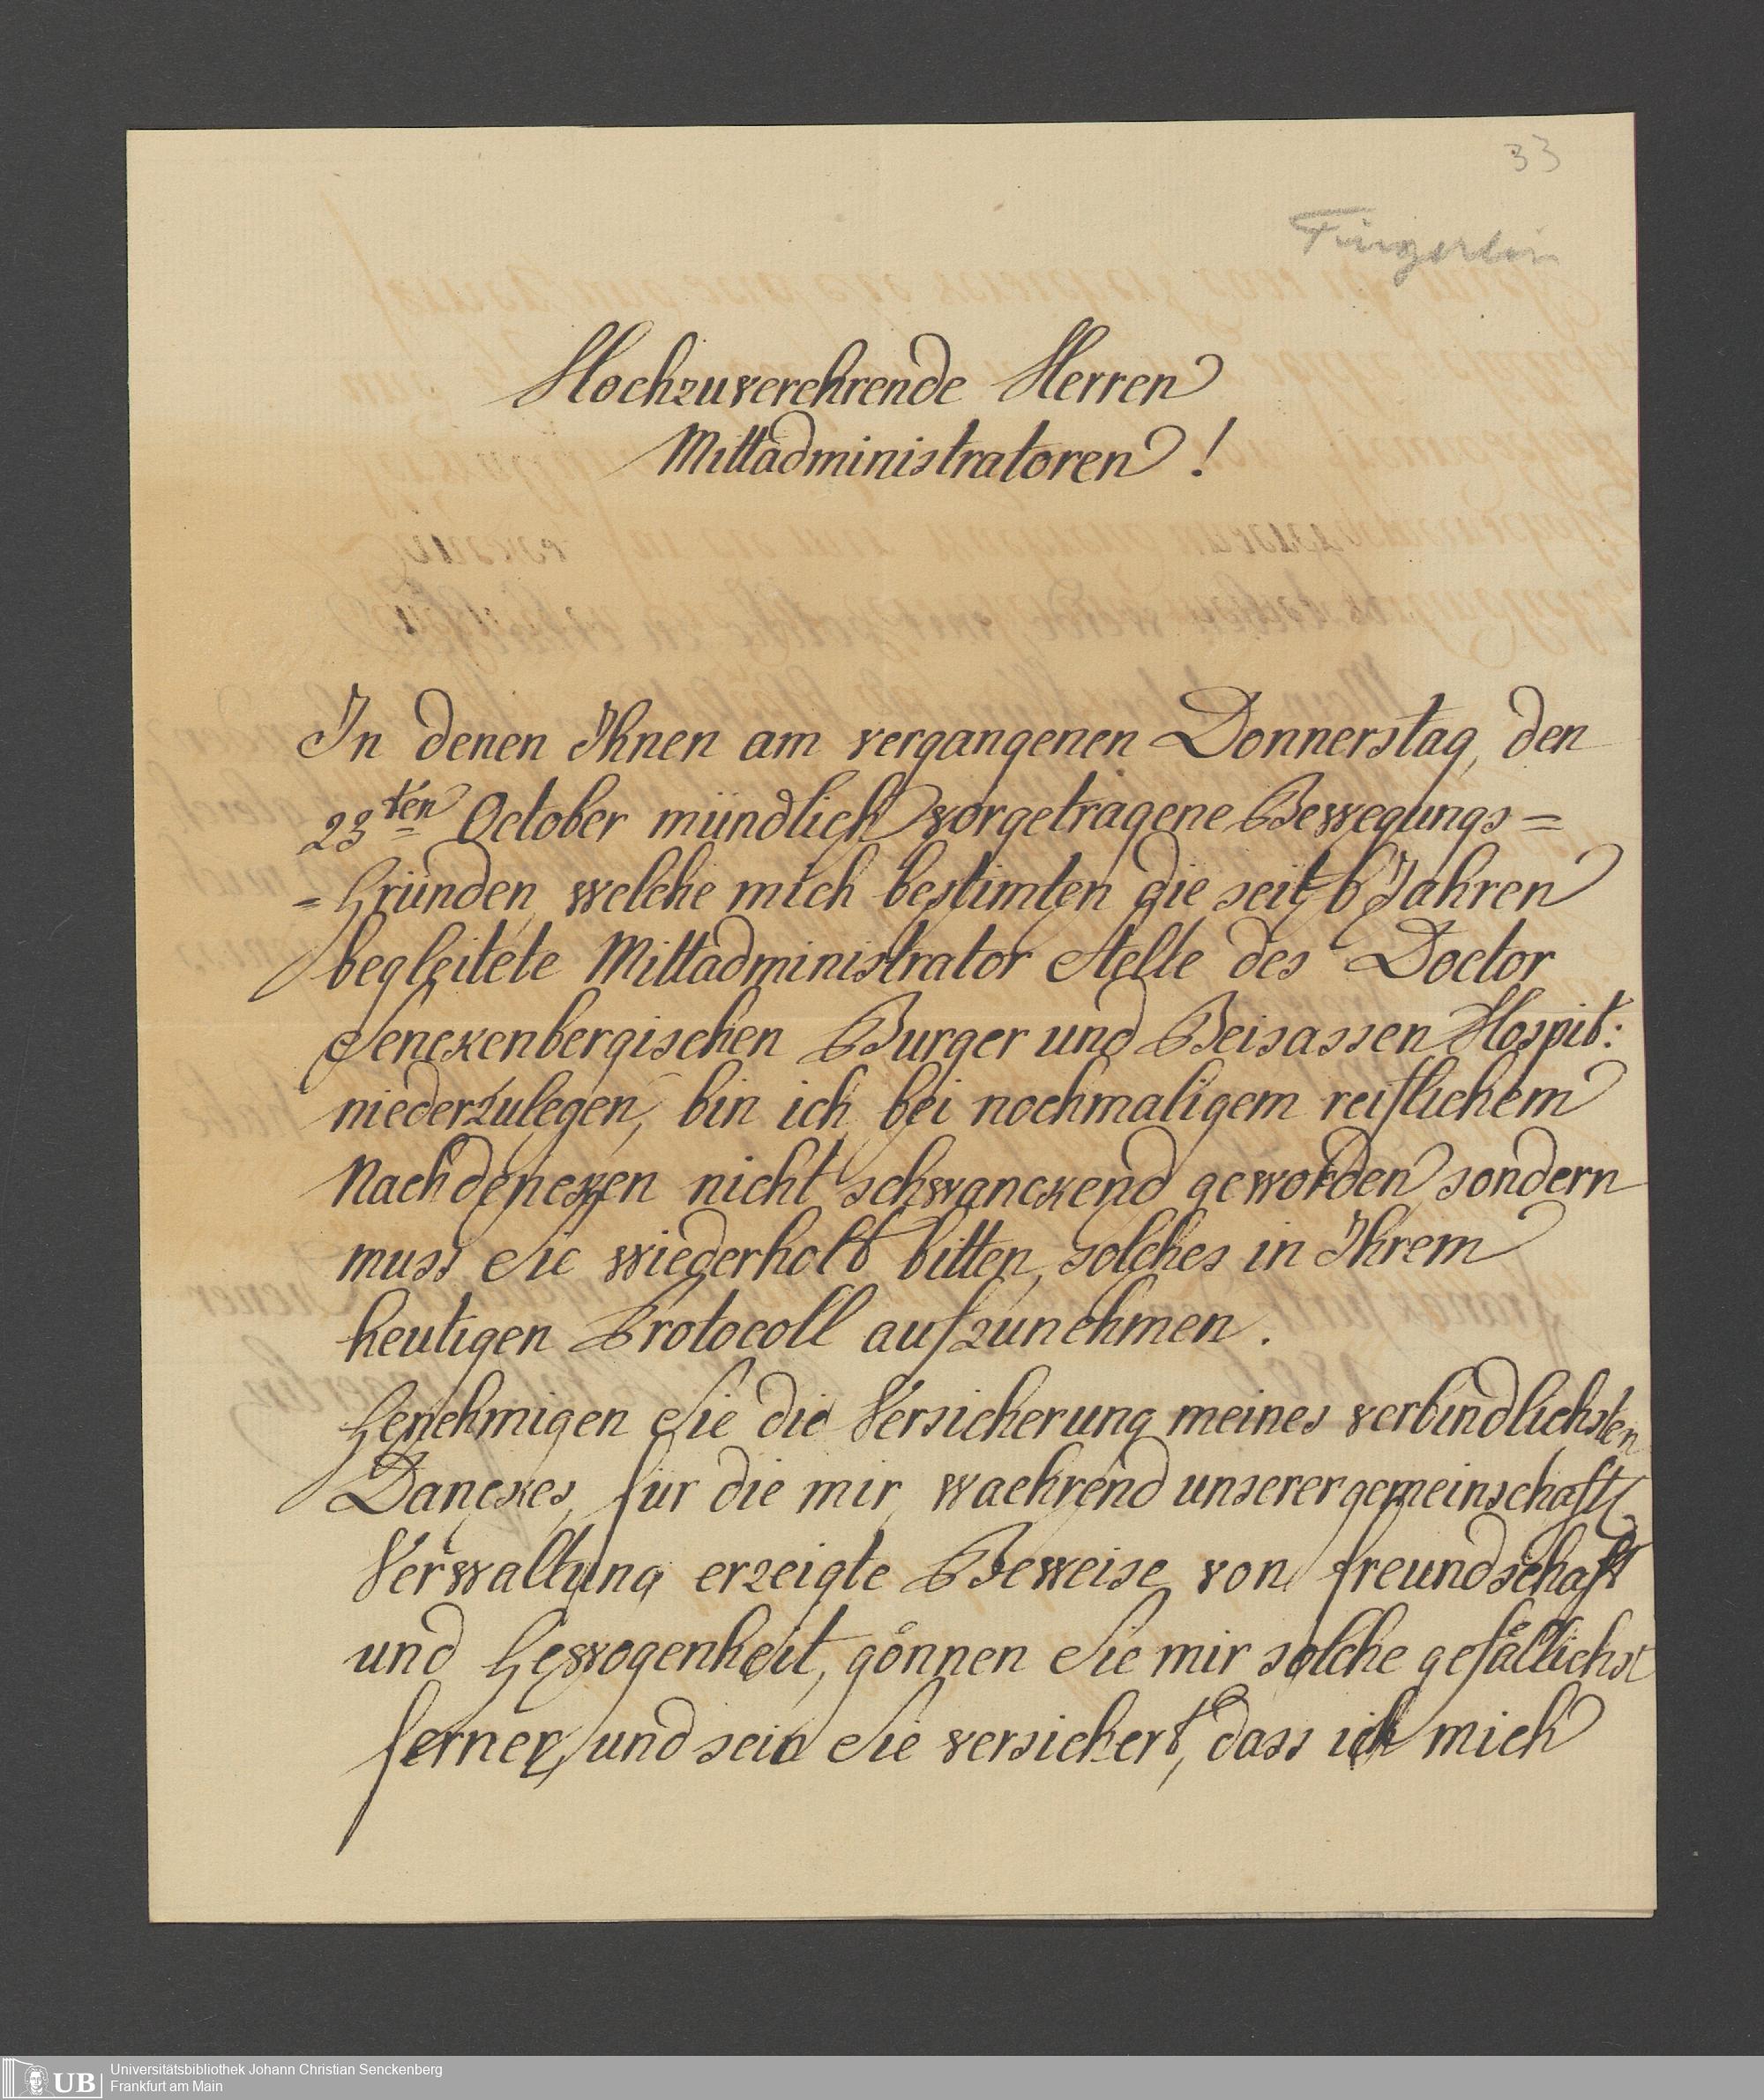 33
Fingerlin
Hochzuverehrende Herren
Mittadministratoren!
In denen Ihnen am vergangenen Donnerstag, den
23ten October mündlich vorgetragene Bewegungs=
=Gründen, welche mich bestimten die seit 6 Jahren
begleitete Mittadministrator Stelle des Doctor
Senckenbergischen Burger und Beisassen Hospit:
niederzulegen, bin ich bei nochmaligem reiflichem
Nachdencken nicht schwanckend geworden sondern
muss Sie wiederholt bitten, solches in Ihrem
heutigen Protocoll aufzunehmen.
Genehmigen Sie die Versicherung meines verbindlichsten
Danckes, für die mir waehrend unserer gemeinschaftl
Verwaltung erzeigte Beweise von freundschaft
und Gewogenheit, gönnen Sie mir solche gefällichst
ferner, und sein Sie versichert, dass ich mich
UB
Universitätsbibliothek Johann Christian Senckenberg
Frankfurt am Main